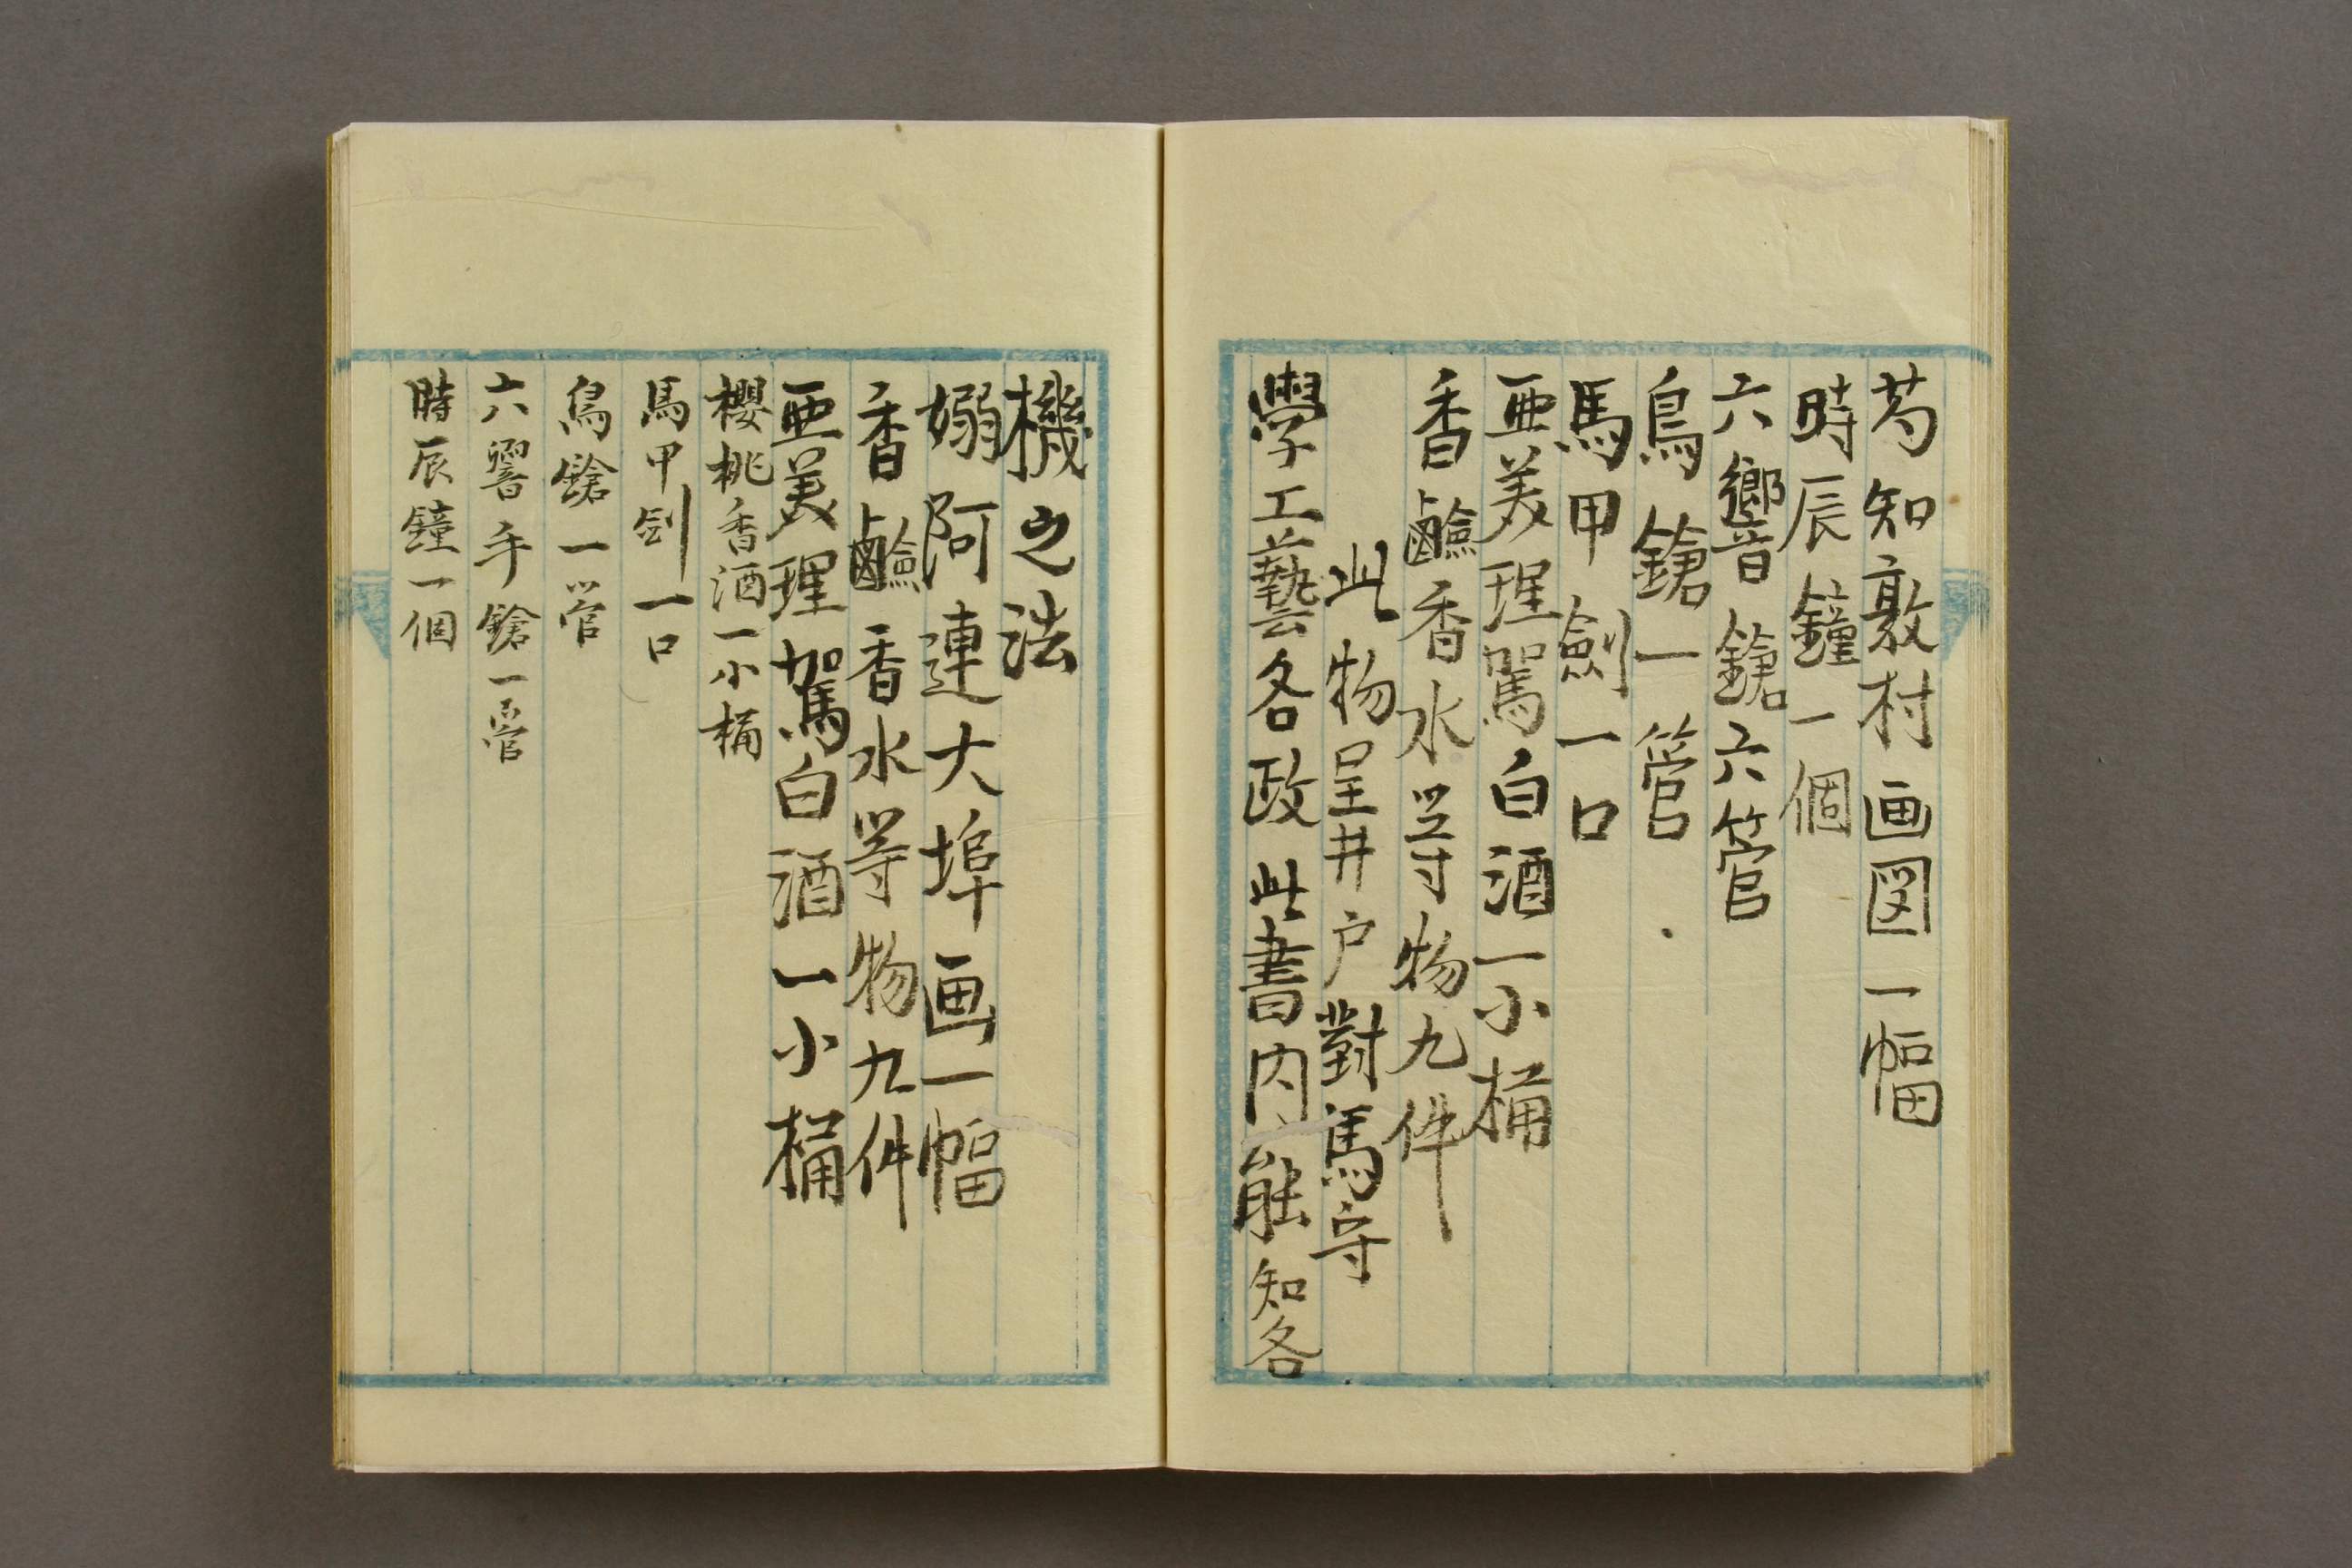 芍知敦村画図一幅
時辰鐘一個
六響鎗六管
鳥鎗一管
馬甲劍一口
亜美理駕白酒一小桶
香鹼香水等物九件
此物呈井戸對馬守
學工藝各政此書内能知各
機之法
嫋阿連大埠画一幅
香鹼香水等物九件
亜美理駕白酒一小桶
櫻桃香酒一小桶
馬甲剑一口
鳥鎗一管
六響手鎗一管
時辰鐘一個